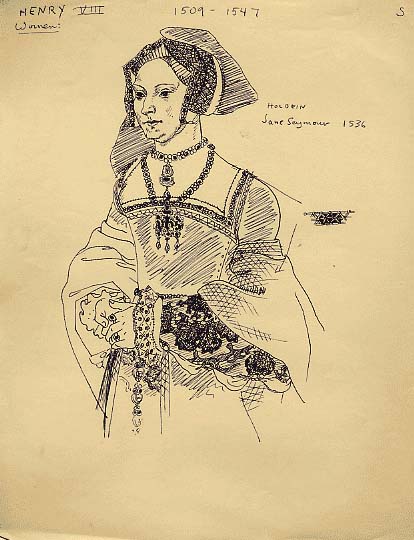 HENRY VIII 1509 - 1547 S
Women:
HOLBEIN
Jane Seymour 1536